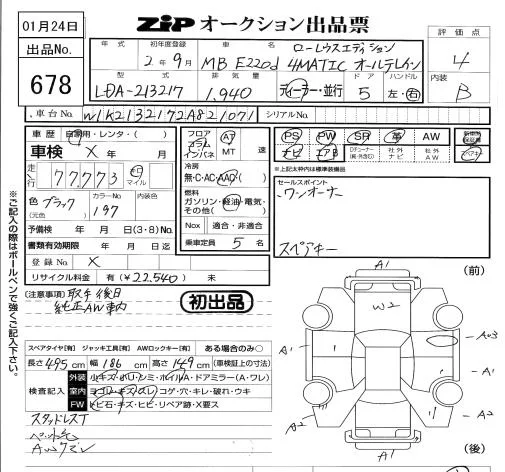 01月24日
出品No.
678
ZiP オークション出品票
年式
初年度登録
2年9月
車名
MB E220d
ローレウスエディション
4MATIC オールテレイン
評価点
4
内装
B
型式
LDA-213217
排気量
1,940
ディーラー・並行
ドア
5
ハンドル
左・右
車台No.
W1K2132172A821071
シリアルNo.
車歴 自家用・レンタ・( )
車検 X 年 月
走行 77,773 キロ マイル
色 ブラック
(元色)
カラーNo.
197
内装色
予備検 年 月 日(3・8)No.
書類有効期限 年 月 日迄
登録No. X
リサイクル料金 有(¥22,540) 未
フロア コラム インパネ
AT
MT 速
冷房
無・C・AC・AAC・( )
燃料
ガソリン・軽油・電気・その他( )
Nox 適合・非適合
乗車定員 5 名
PS PW SR 革 AW
ナビ エアB Dチューナー(純・外含む) 社外ナビ 社外AW スペアキー
※上記太枠内は標準装備品
セールスポイント
・ワンオーナー
スペアキー
※ご記入の際はボールペンで強くご記入下さい。
(注意事項) 取手後日
純正AW車内
初出品
スペアタイヤ[有] ジャッキ工具[有] AWロックキー[有] ある場合のみ○
長さ 495 cm 幅 186 cm 高さ 149 cm (車検証上の寸法)
検査記入
外装 小キズ・ホリ・トミ・ホイルA・ドアミラー(A・ワレ)
室内 ヨゴレ・キズ・スレ・コゲ・穴・キレ・破れ・ウキ
FW トビ石・キズ・ヒビ・リペア跡・X要ス
スタッドレスT
AWダミー
(前)
A1
W2
A1
A1
A2
A2
A1
(後)